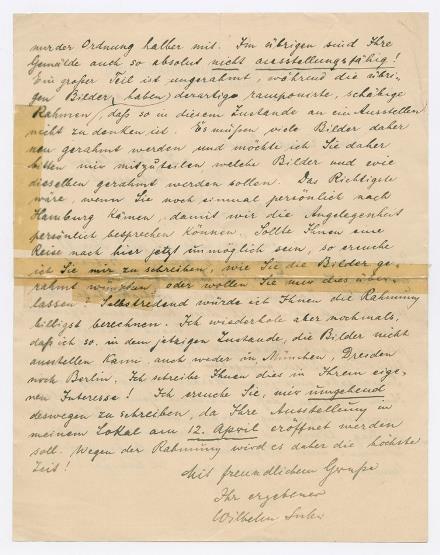 nur der Ordnung halber mit. Im übrigen sind Ihre
Gemälde auch so absolut nicht ausstellungsfähig!
Ein großer Teil ist ungerahmt, während die übri-
gen Bilder (haben) derartige ramponierte, schäbige
Rahmen, daß so in diesem Zustande an ein Ausstellen
nicht zu denken ist. Es müßen viele Bilder daher
neu gerahmt werden und möchte ich Sie daher
bitten mir mitzuteilen welche Bilder und wie
dieselben gerahmt werden sollen. Das Richtigste
wäre, wenn Sie noch einmal persönlich nach
Hamburg kämen, damit wir die Angelegenheit
persönlich besprechen können. Sollte Ihnen eine
Reise nach hier jetzt unmöglich sein, so ersuche
ich Sie mir zu schreiben, wie Sie die Bilder ge-
rahmt wünschen oder wollen Sie mir dies über-
lassen? Selbstredend würde ich Ihnen die Rahmung
billigst berechnen. Ich wiederhole aber nochmals,
daß ich so, in dem jetzigen Zustande, die Bilder nicht
ausstellen kann, auch weder in München, Dresden
noch Berlin. Ich schreibe Ihnen dies in Ihrem eige-
nen Interesse! Ich ersuche Sie, mir umgehend
deswegen zu schreiben, da Ihre Ausstellung in
meinem Lokal am 12. April eröffnet werden
soll. Wegen der Rahmung wird es daher die höchste
Zeit!
Mit freundlichem Gruße
Ihr ergebener
Wilhelm